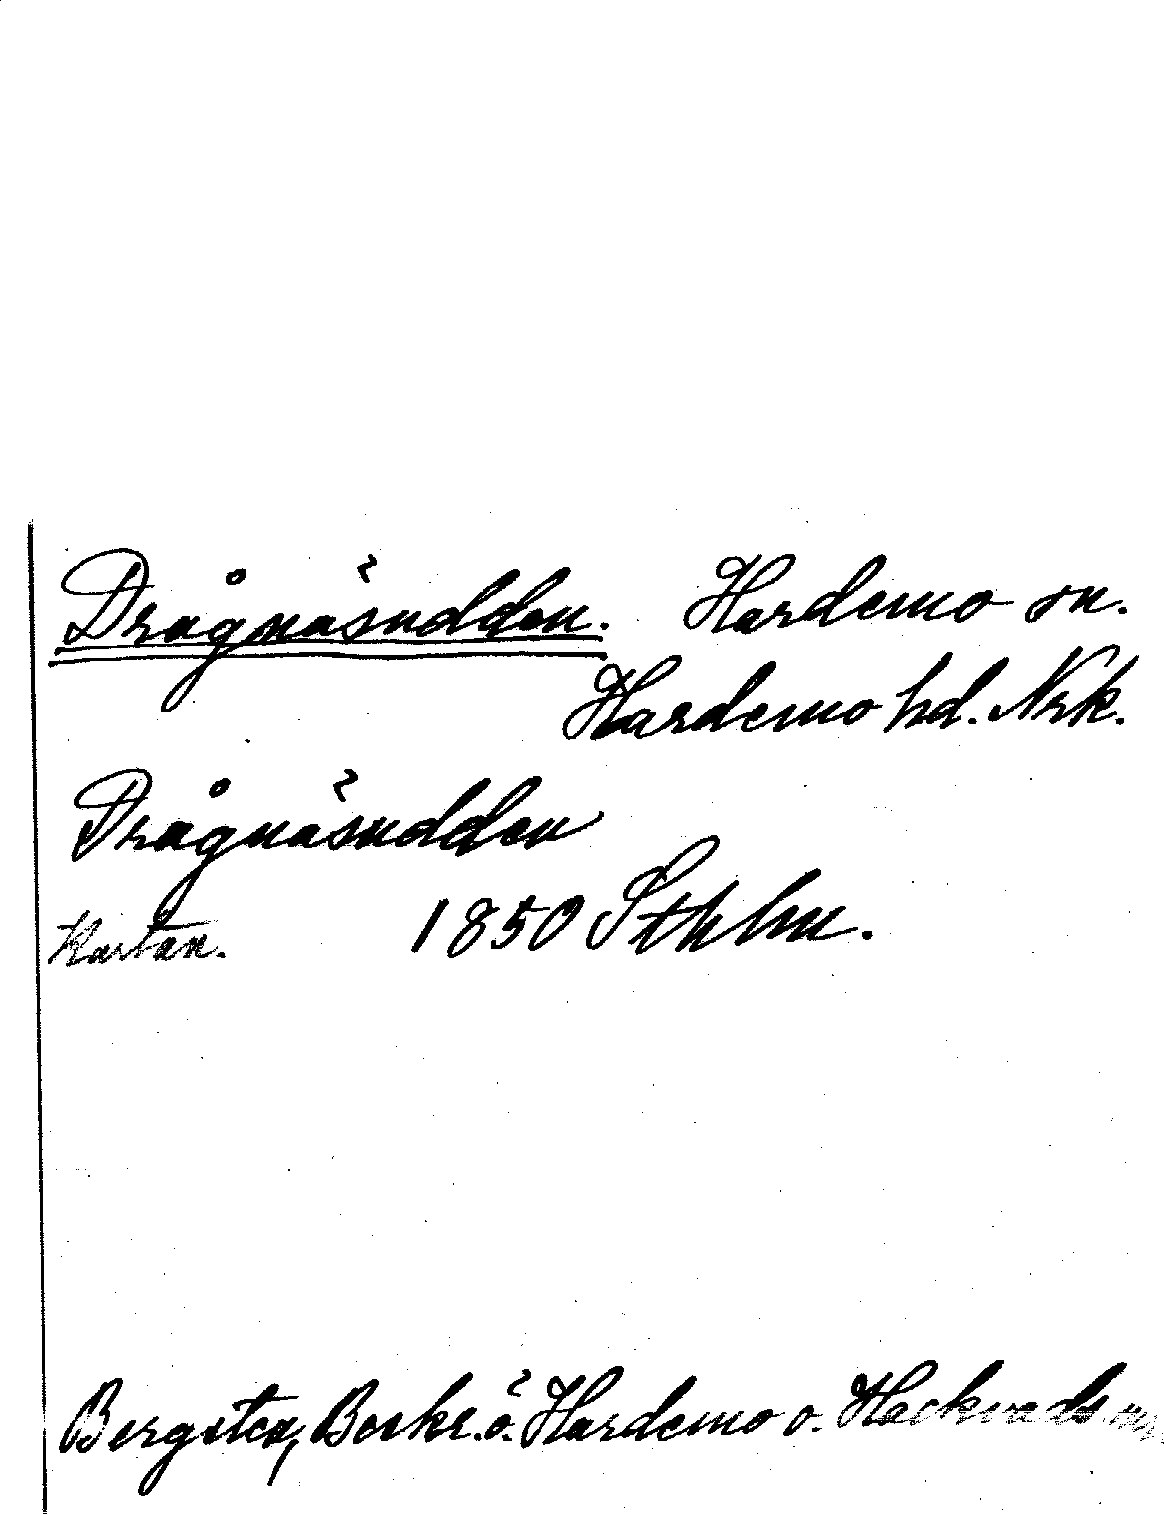 Drågnäsudden. Hardemo sn.
Hardemo hd. Nrk.
Drågnäsudden
Kartan. 1850 Sthlm.
Bergsten, Beskr. ö. Hardemo o. Hackvads snr